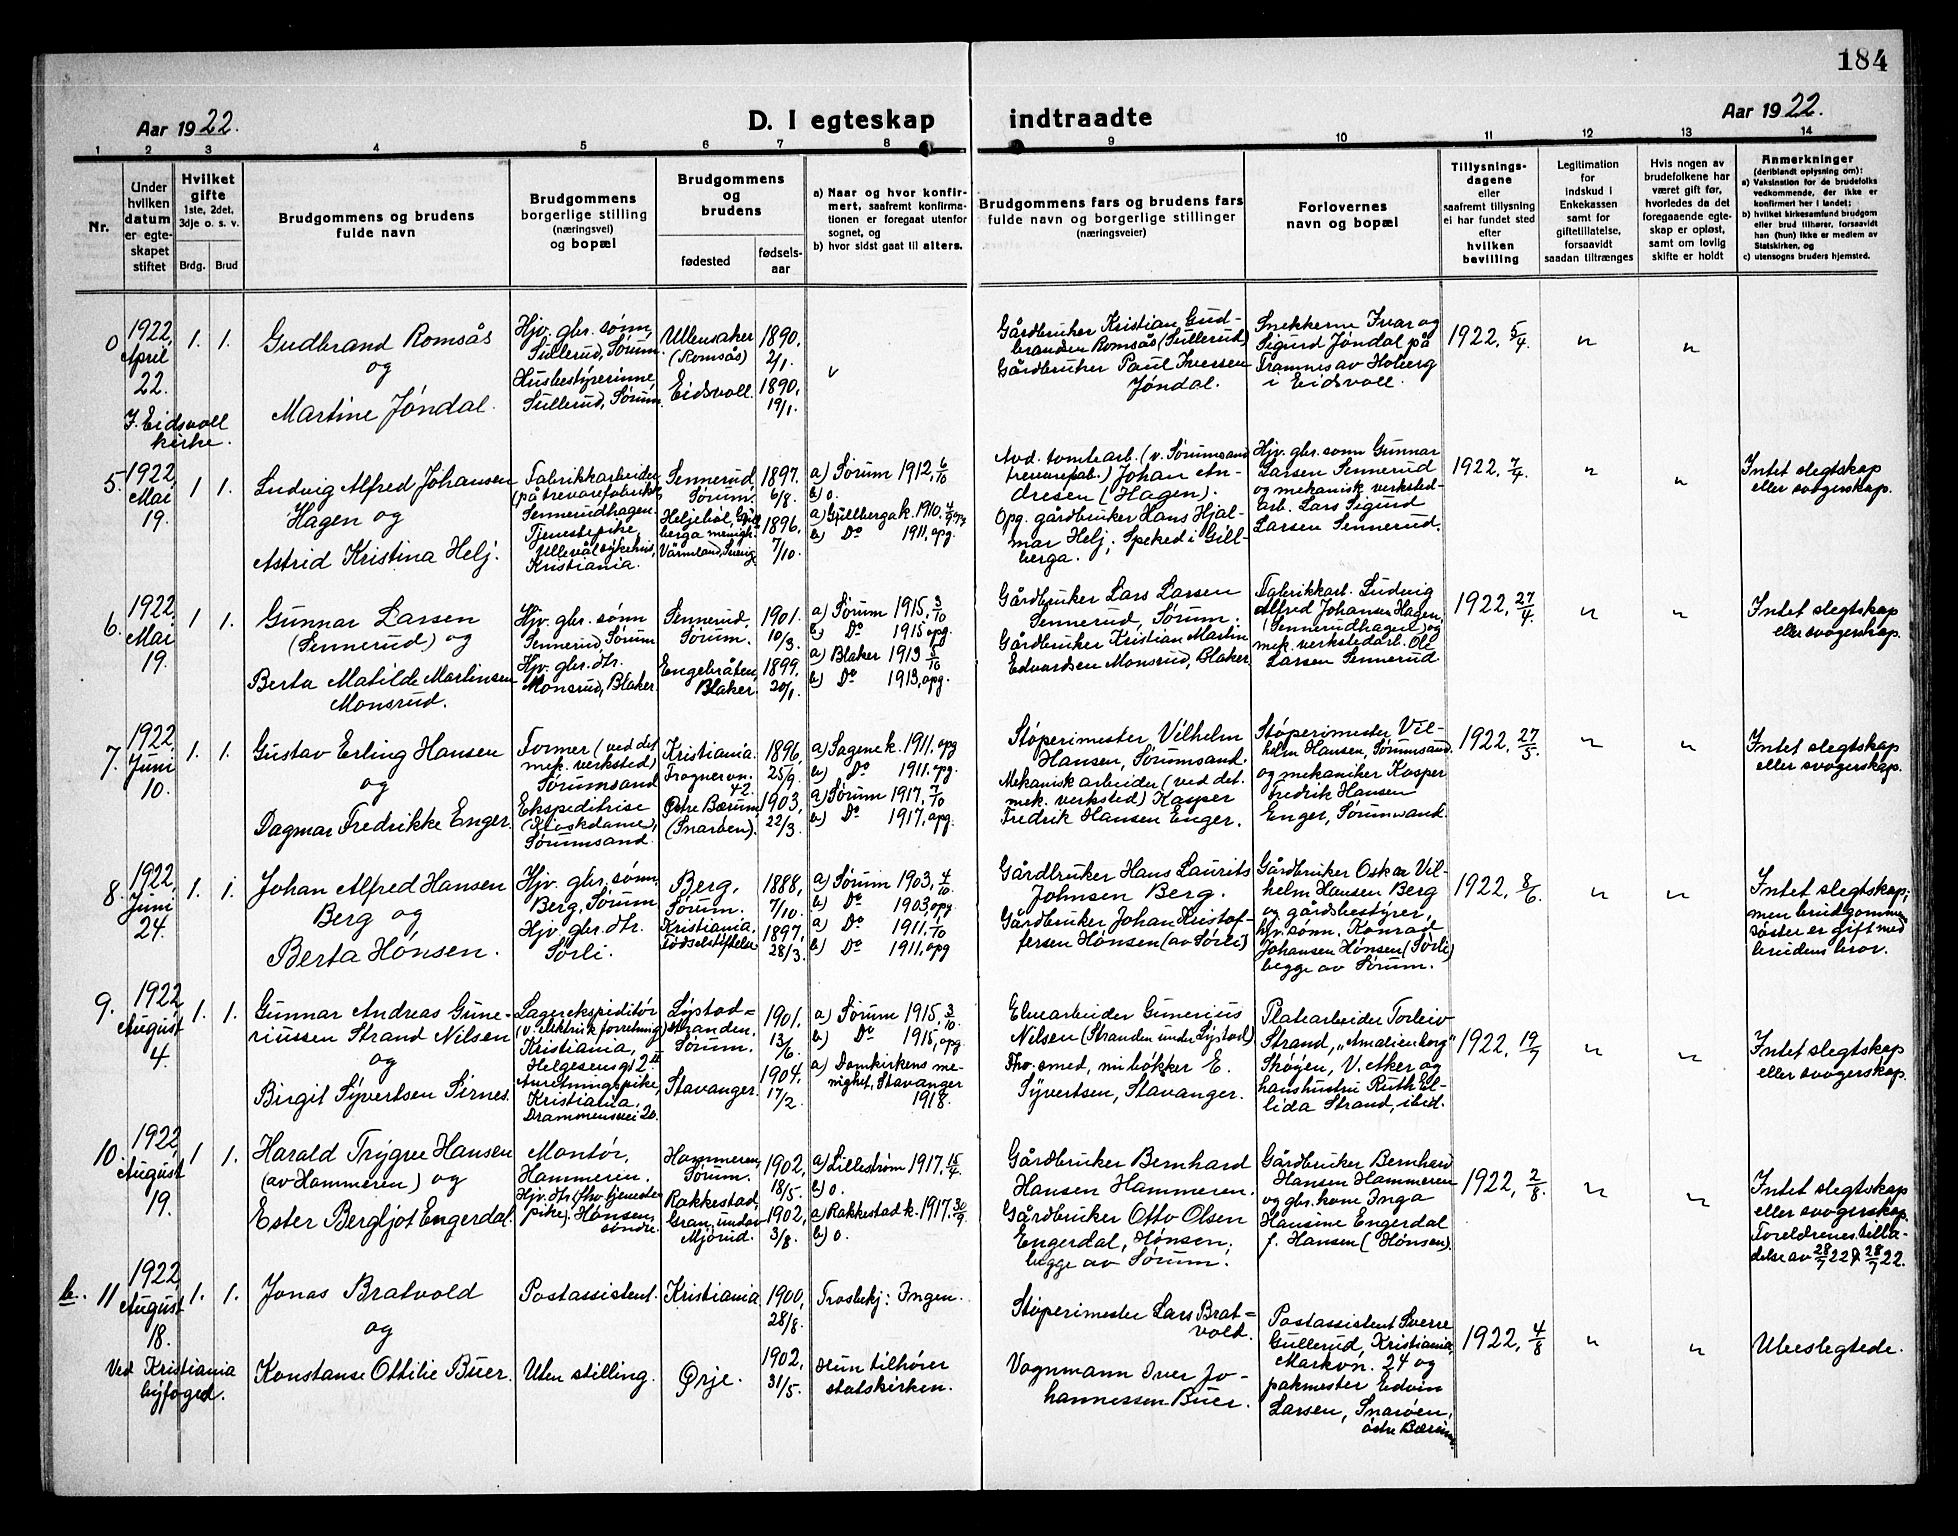 184
Aar 1922.
D. I egteskap indtraadte
Aar 1922.
1 2 3 4 5 6 7 8 9 10 11 12 13 14
Nr.
Under
hvilken
datum
er egte-
skapet
stiftet
Hvilket
gifte
1ste, 2det,
3dje o. s. v.
Brdg. Brud
Brudgommens og brudens
fulde navn
Brudgommens
borgerlige stilling
(næringsvei)
og bopæl
Brudgommens
og
brudens
fødested
fødsels-
aar
a) Naar og hvor konfir-
mert, saafremt konfirma-
tionen er foregaat utenfor
sognet, og
b) hvor sidst gaat til alters.
Brudgommens fars og brudens fars
fulde navn og borgerlige stillinger
(næringsveier)
Forlovernes
navn og bopæl
Tillysnings-
dagene
eller
saafremt tillysning
ei har fundet sted
efter
hvilken
bevilling
Legitimation
for
indskud i
Enkekassen
samt for
giftetillatelse,
forsaavidt
saadan tiltrænges
Hvis nogen av
brudefolkene har
været gift før,
hvorledes da det
foregaaende egte-
skap er opløst,
samt om lovlig
skifte er holdt
Anmerkninger
(deriblandt oplysning om):
a) Vaksination for de brudefolks
vedkommende, der ikke er
konfirmert her i landet;
b) hvilket kirkesamfund brudgom
eller brud tilhører, forsaavidt
han (hun) ikke er medlem av
Statskirken, og
c) utensogns bruders hjemsted.
0
1922,
April
22.
I Eidsvoll
kirke.
1. 1.
Gudbrand Romsås
og
Martine Jøndal.
Hjv. gbr. sønn,
Sullerud, Sørum.
Husbestyrerinne
Sullerud, Sørum.
Ullensaker
(Romsås)
Eidsvoll.
1890.
2/1.
1890,
19/1.
Gårdbruker Kristian Gud-
brandsen Romsås (Sullerud)
Gårdbruker Paul Iversen
Jøndal.
Snekkerne Ivar og
Sigurd Jøndal på
Tramnes av Hoberg
i Eidsvoll.
1922, 5/4
" "
5.
1922,
Mai
19.
1 1.
Ludvig Alfred Johansen
Hagen og
Astrid Kristina Helj.
Fabrikkarbeider
(på trevarefabrikk)
Sennerudhagen.
Tjenestepike,
Ullevål sykehus,
Kristiania.
Sennerud,
Sørum.
Heljebøl, Gill-
berga menigh.
Värmland, Sverig
1897.
6/8.
1896,
7/10.
a) Sørum 1912, 6/10
b) o.
a) Gillberga k. 1910. 4/9 opg
b) Do 1911, opg.
Avd. tomtearb. (v. Sørumsand
trevarefab.) Johan An-
dresen (Hagen).
Opg. gårdbruker Hans Hjal-
mar Helj, Speked i Gill-
berga.
Hjv. gbr. sønn Gunnar
Larsen Sennerud
og mekanisk verksted-
arb. Lars Sigurd
Larsen Sennerud.
1922, 7/4
" "
Intet slegtskap
eller svogerskap.
6.
1922.
Mai
19.
1 1.
Gunnar Larsen
(Sennerud) og
Berta Matilde Martinsen
Monsrud.
Hjv. gbr. sønn
Sennerud, Sørum
Hjv. gbr. dtr.
Monsrud, Blaker
Sennerud,
Sørum.
Engebråten,
Blaker.
1901.
10/3.
1899.
20/1.
a) Sørum 1915, 3/10
b) Do 1915 opg.
a) Blaker 1913 5/10
b) Do 1913, opg.
Gårdbruker Lars Larsen
Sennerud, Sørum.
Gårdbruker Kristian Martin
Edvardsen Monsrud, Blaker.
Fabrikkarb. Ludvig
Alfred Johansen Hagen,
(Sennerudhagen) og
mek. verkstedarb. Ole
Larsen Sennerud.
1922, 27/4
" "
Intet slegtskap
eller svogerskap.
7.
1922
Juni
10.
1. 1.
Gustav Erling Hansen
og
Dagmar Fredrikke Enger.
Former (ved det
mek. verksted)
Sørumsand
Ekspeditrise
(Kioskdame),
Sørumsand.
Kristiania.
Frognervn.
42.
Østre Bærum
(Snarøen).
1896,
25/9.
1903,
22/3.
a) Sagene k. 1911, opg
b) Do 1911, opg.
a) Sørum 1917, 7/10
b) Do 1917, opg.
Støperimester Vilhelm
Hansen, Sørumsand.
Mekanisk arbeider (ved det
mek. verksted) Kasper
Fredrik Hansen Enger.
Støperimester Vil-
helm Hansen, Sørumsand.
og mekaniker Kasper
Fredrik Hansen
Enger, Sørumsand.
1922, 27/5
" "
Intet slegtskap
eller svogerskap.
8.
1922,
Juni
24.
1. 1.
Johan Alfred Hansen
Berg og
Berta Hønsen.
Hjv. gbr. sønn,
Berg, Sørum
Hjv. gbr. dtr.
Sørli.
Berg,
Sørum.
Kristiania,
Fødselstiftelse
1888,
7/10.
1897,
28/3.
a) Sørum 1903, 4/10
b) Do 1903 opg.
a) Do 1911, 1/10
b) Do 1911, opg
Gårdbruker Hans Laurits
Johnsen Berg.
Gårdbruker Johan Kristof-
fersen Hønsen (av Sørli)
Gårdbruker Oskar Vil-
helm Hansen Berg
og gårdsbestyrer,
hjv. sønn, Konrad
Johansen Hønsen (Sørli)
begge av Sørum.
1922, 8/6
" "
Intet slegtskap;
men brudgommens
søster er gift med
brudens bror.
9.
1922
August
4.
1. 1.
Gunnar Andreas Gune-
riussen Strand Nilsen
og
Birgit Syvertsen Sirnes.
Lagerekspeditør
(v. elektrik forretning)
Kristiania,
Helgesensgt 2 II
Anretningspike,
Kristiania,
Drammensvei 20.
Lystad=
stranden,
Sørum.
Stavanger.
1901.
13/6.
1904.
17/2.
a) Sørum 1915, 3/10.
b) Do 1915, opg
a) Domkirkens me-
nighet, Stavanger
1918.
Elvearbeider Gunerius
Nilsen (Stranden under Lystad)
Fho. smed, nu bøkker E.
Syvertsen, Stavanger.
Platearbeider Torleiv
Strand, „Amalienborg"
Skøyen, V. Aker og
hans hustru Ruth El-
lida Strand, ibid.
1922, 19/7
" "
Intet slegtskap
eller svogerskap.
10.
1922,
August
19.
1 1.
Harald Trygve Hansen
(av Hammeren) og
Ester Bergljot Engerdal.
Montør,
Hammeren.
Hjv. dtr. (fhv. tjeneste-
pike). Hønsen,
søndre.
Hammeren,
Sørum.
Rakkestad,
Gran, under
Mjørud.
1902,
18/5.
1902,
3/8.
a) Lillestrøm 1917. 15/4.
b) o.
a) Rakkestad k. 1917. 30/9.
b) o.
Gårdbruker Bernhard
Hansen Hammeren.
Gårdbruker Otto Olsen
Engerdal, Hønsen,
begge av Sørum.
Gårdbruker Bernhard
Hansen Hammeren
og gbr. kone Inga
Hansine Engerdal
f. Hansen (Hønsen).
1922, 2/8.
" "
Intet slegtskap
eller svogerskap.
Foreldrenes tilla-
delse av 28/7 22 & 28/7 22.
b. 11
1922
August
18.
Ved Kristiania
byfoged.
1. 1.
Jonas Bratvold
og
Konstanse Ottilie Buer.
Postassistent.
Uten stilling.
Kristiania
Ørje.
1900,
28/8.
1902,
31/5.
Trosbekj: Ingen.
Hun tilhører
statskirken.
Støperimester Lars Brat=
vold.
Vognmann Iver Jo-
hannessen Buer.
Postassistent Sverre
Gullerud, Kristiania,
Markvn. 24 og
pakmester Edvin
Larsen, Snarøen,
østre Bærum
1922, 4/8
" "
Ubeslegtede.